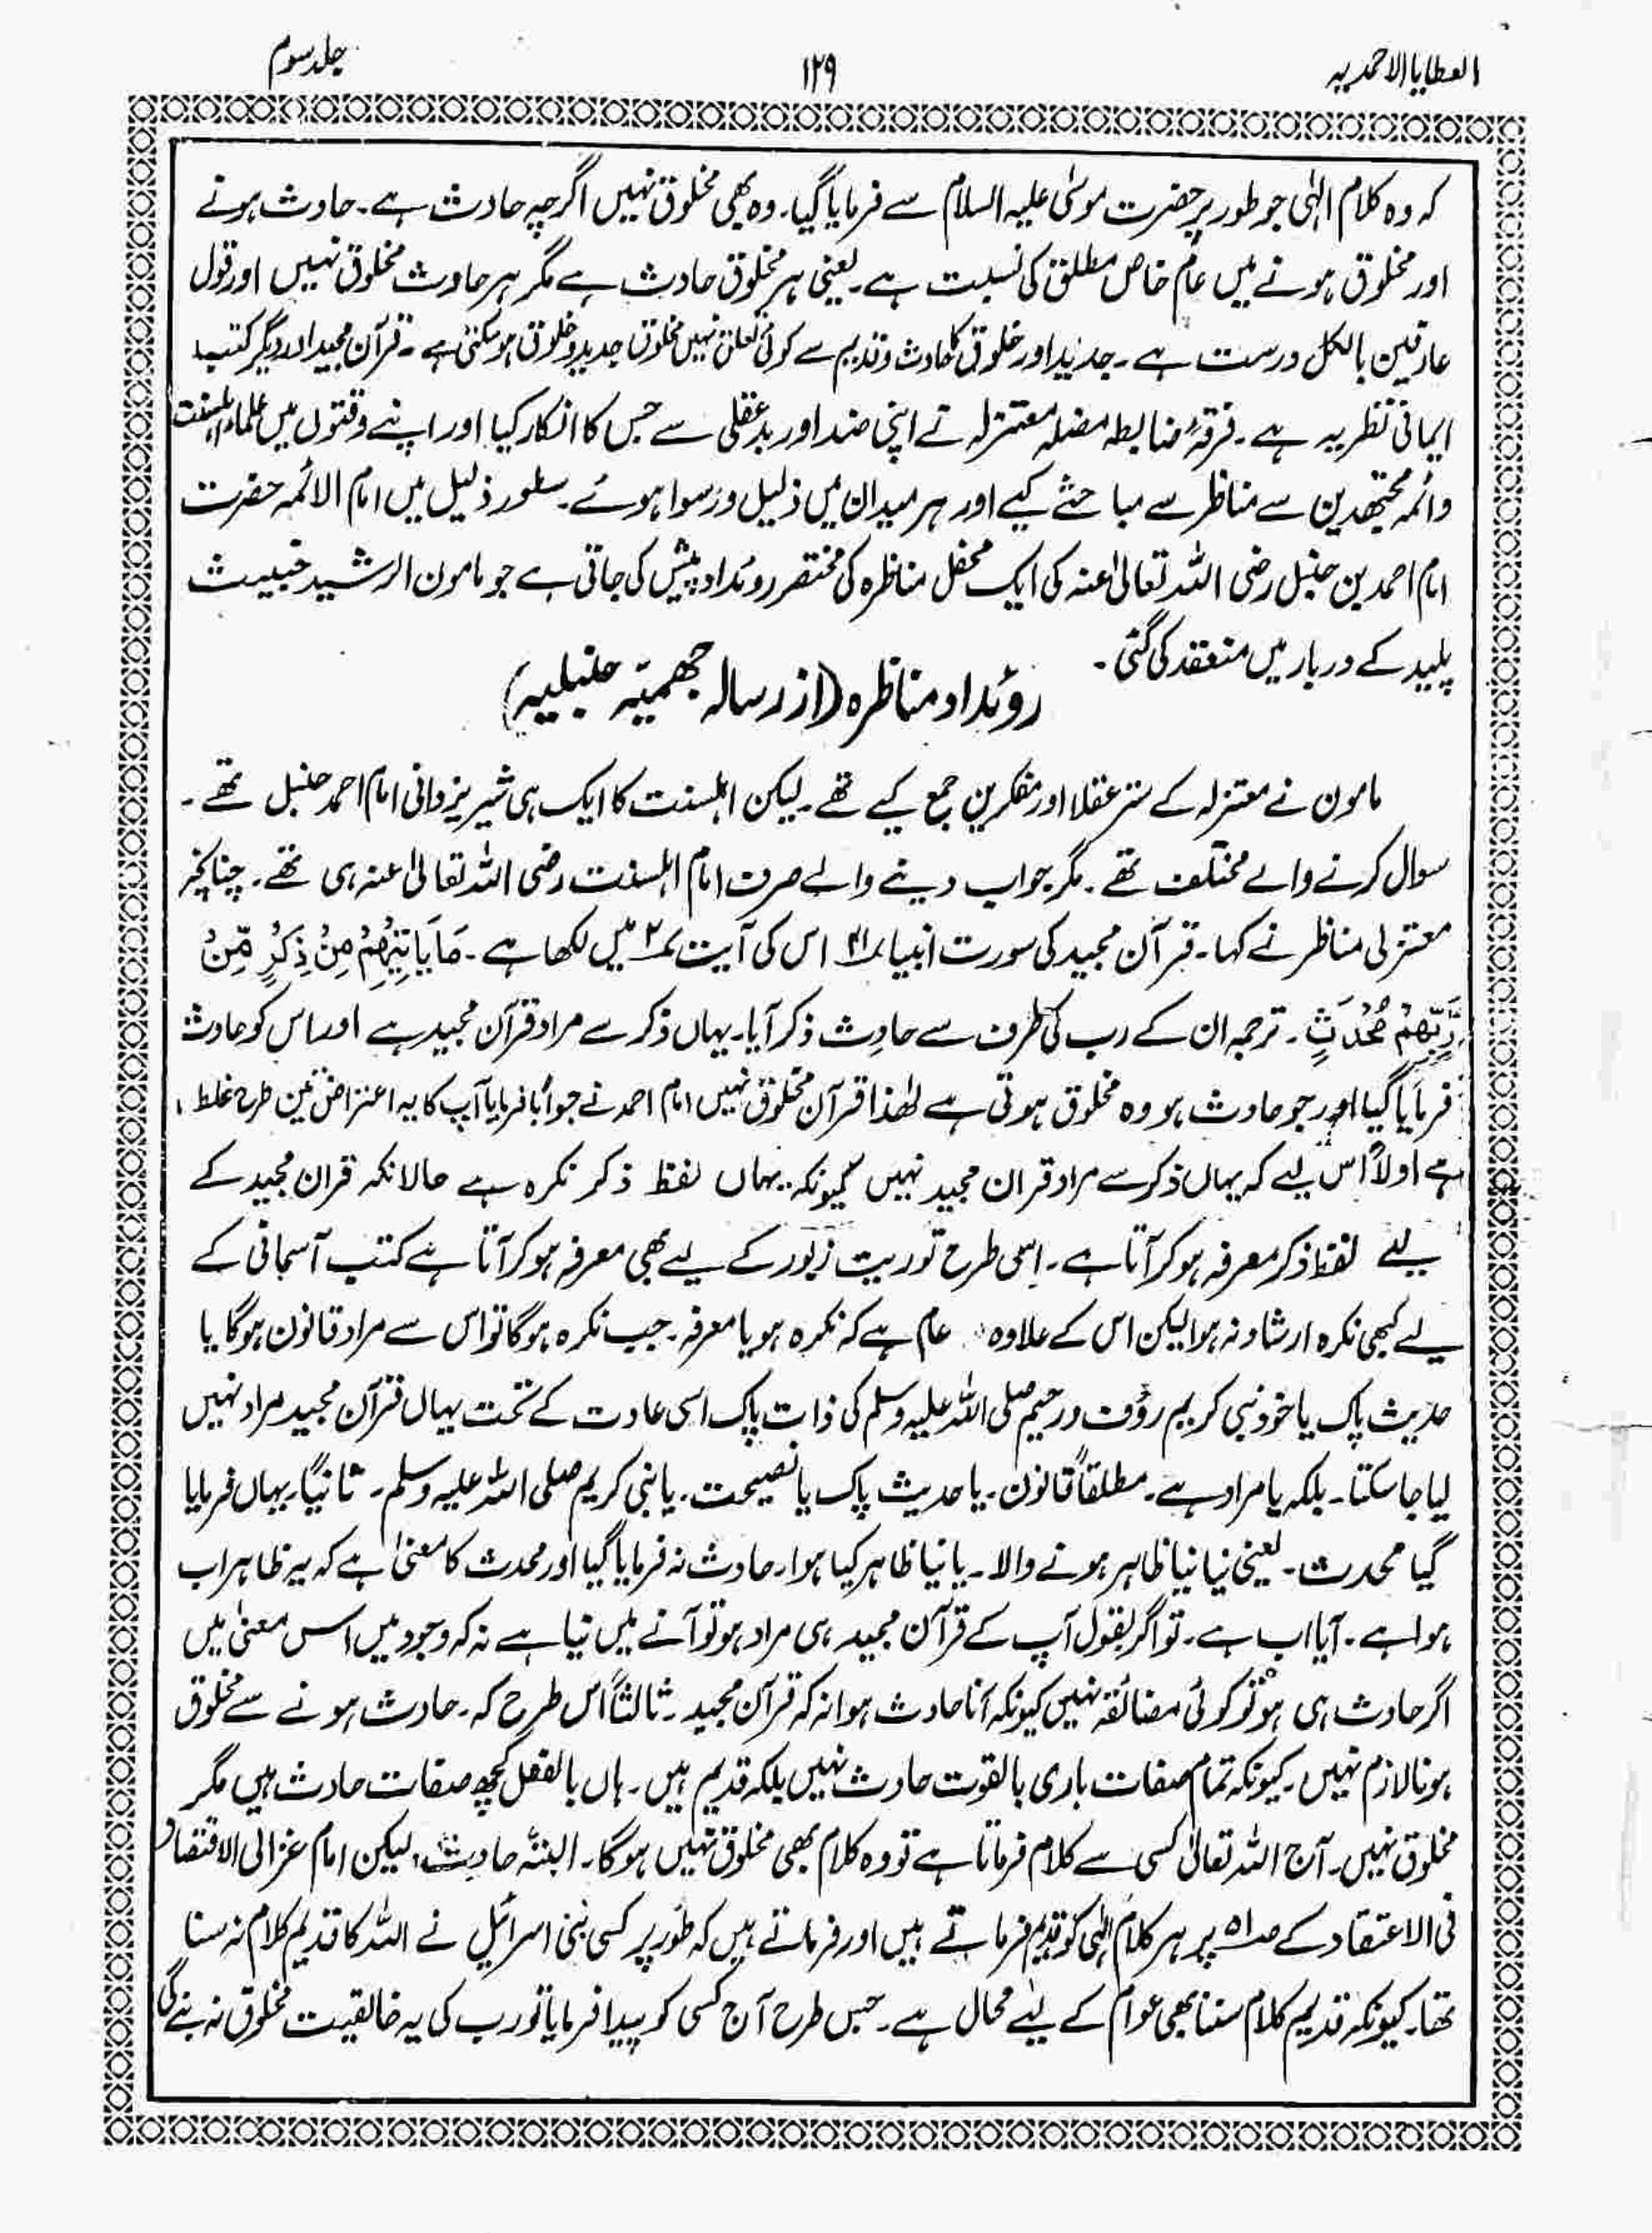 العطایا الاحمدیہ
۱۲۹
جلد سوم
کہ وہ کلام الٰہی جو طور پر حضرت موسٰی علیہ السلام سے فرمایا گیا۔ وہ بھی مخلوق نہیں اگرچہ حادث ہے۔ حادث ہونے
اور مخلوق ہونے میں عام خاص مطلق کی نسبت ہے۔ یعنی ہر مخلوق حادث ہے مگر ہر حادث مخلوق نہیں اور قول
عارفین بالکل درست ہے۔ جدید اور خلوق کا حادث و قدیم سے کوئی تعلق نہیں مخلوق جدید و خلوق ہو سکتی ہے۔ قرآن مجید اور دیگر کتب پر
ایمانی نظریہ ہے۔ فرقۂ ضابطہ مضلہ معتزلہ نے اپنی ضد اور بدعقلی سے جس کا انکار کیا اور اپنے وقتوں میں علماء اہلسنت
وائمہ مجتھدین سے مناظر سے مباحثے کیے اور ہر میدان میں ذلیل ورسوا ہوئے۔ سطور ذیل میں امام الائمہ حضرت
امام احمد بن حنبل رضی اللہ تعالیٰ عنہ کی ایک محفل مناظرہ کی مختصر روئداد پیش کی جاتی ہے جو مامون الرشید خبیث
پلید کے دربار میں منعقد کی گئی۔
روئداد مناظرہ (از رسالہ جھمیّہ حنبلیہ)
مامون نے معتزلہ کے ستر عقلا اور مفکرین جمع کیے تھے۔ لیکن اہلسنت کا ایک ہی شیر یزدانی امام احمد حنبل تھے۔
سوال کرنے والے مختلف تھے۔ مگر جواب دینے والے صرف امام اہلسنت رضی اللہ تعالیٰ عنہ ہی تھے۔ چنانچہ
معتزلی مناظر نے کہا۔ قرآن مجید کی سورت انبیاء ۲۱ اس کی آیت ۲ میں لکھا ہے۔ مَا یَاتِیْهِمْ مِنْ ذِکْرٍ مِّنْ
رَّبِّهِمْ مُحْدَثٍ۔ ترجمہ ان کے رب کی طرف سے حادِث ذکر آیا۔ یہاں ذکر سے مراد قرآن مجید ہے اور اس کو حادث
فرمایا گیا اور جو حادث ہو وہ مخلوق ہوتی ہے لھٰذا قرآن مخلوق نہیں امام احمد نے جواباً فرمایا آپ کا یہ اعتراض تین طرح غلط
ہے اولاً اس لیے کہ یہاں ذکر سے مراد قران مجید نہیں کیونکہ یہاں لفظ ذکر نکرہ ہے حالانکہ قران مجید کے
لیے لفظ ذکر معرفہ ہو کر آتا ہے۔ اِسی طرح توریت زبور کے لیے بھی معرفہ ہو کر آتا ہے کتب آسمانی کے
لیے کبھی نکرہ ارشاد نہ ہوا لیکن اس کے علاوہ عام ہے کہ نکرہ ہو یا معرفہ۔ جب نکرہ ہوگا تو اس سے مراد قانون ہوگا یا
حدیث پاک یا خود نبی کریم رؤف ورحیم صلی اللہ علیہ وسلم کی ذات پاک اسی عادت کے تحت یہاں قرآن مجید مراد نہیں
لیا جا سکتا۔ بلکہ یا مراد ہے۔ مطلقاً قانون۔ یا حدیث پاک یا نصیحت۔ یا نبی کریم صلی اللہ علیہ وسلم۔ ثانیًا یہاں فرمایا
گیا محدث۔ یعنی نیا نیا ظاہر ہونے والا۔ یا نیا ظاہر کیا ہوا۔ حادث نہ فرمایا گیا اور محدث کا معنیٰ ہے کہ یہ ظاہر اب
ہوا ہے۔ آیا اب ہے۔ تو اگر بقول آپ کے قرآن مجید ہی مراد ہو تو آنے میں نیا ہے نہ کہ وجود میں اس معنیٰ میں
اگر حادث ہی ہو تو کوئی مضائقہ نہیں کیونکہ آنا حادث ہوا نہ کہ قرآن مجید۔ ثالثاً اس طرح کہ۔ حادث ہونے سے مخلوق
ہونا لازم نہیں۔ کیونکہ تمام صفات باری بالقوت حادث نہیں بلکہ قدیم ہیں۔ ہاں بالفعل کچھ صفات حادث ہیں مگر
مخلوق نہیں۔ آج اللہ تعالیٰ کسی سے کلام فرماتا ہے تو وہ کلام بھی مخلوق نہیں ہوگا۔ البتہ حادِث، لیکن امام غزالی الاقتصاد
فی الاعتقاد کے صـ۵۱ پر ہر کلام الٰہی کو قدیم فرماتے ہیں اور فرماتے ہیں کہ طور پر کسی بنی اسرائیل نے اللہ کا قدیم کلام نہ سنا
تھا۔ کیونکہ قدیم کلام سننا بھی عوام کے لیے محال ہے۔ جس طرح آج کسی کو پیدا فرمایا تو رب کی یہ خالقیت مخلوق نہ بنے گی